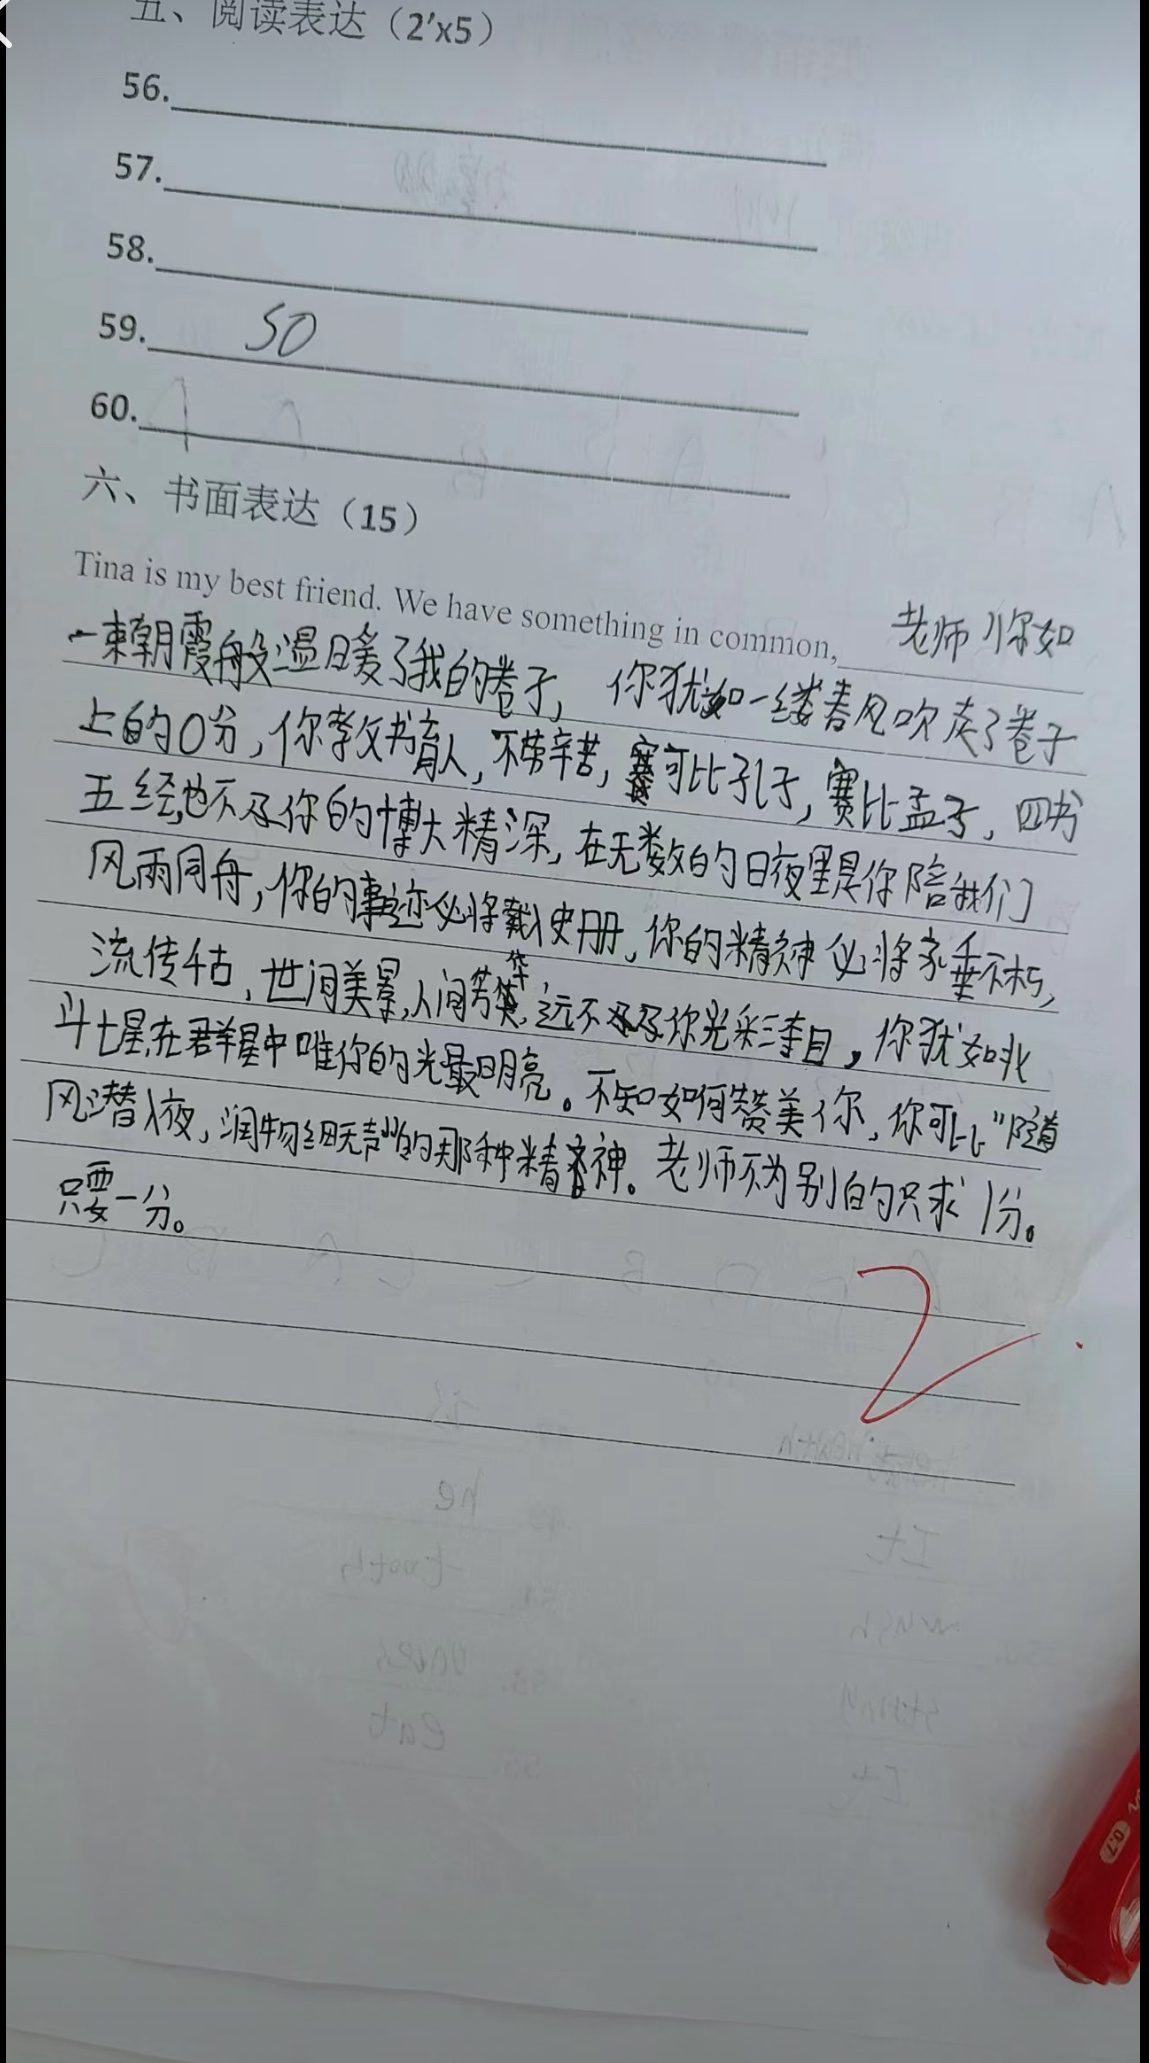 五、阅读表达（2'x5）
56.
57.
58.
59. SO
60.
六、书面表达（15）
Tina is my best friend. We have something in common, 老师你如
一束朝霞般温暖了我的卷子，你犹如一缕春风吹走了卷子
上的0分，你教书育人，不劳辛苦，赛可比孔子，赛比孟子，四书
五经也不及你的博大精深，在无数的日夜里是你陪我们
风雨同舟，你的事迹必将载史册，你的精神必将永垂不朽，
流传千古，世间美景，人间芳华，远不及你光彩夺目，你犹如北
斗七星，在群星中唯你的光最明亮。不知如何赞美你，你可比“随
风潜入夜，润物细无声”的那种精神。老师不为别的只求1分。
只要一分。
2
0.7